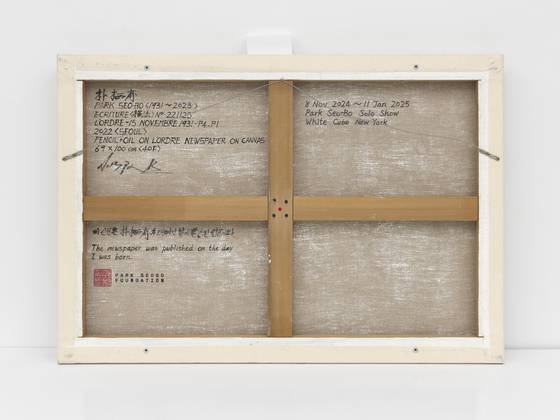 PARK SEO-BO (1931~2023)
ECRITURE (描法) Nº 221125
L'ORDRE-15 NOVEMBRE 1931-P4.P1
2022 (SEOUL)
PENCIL+OIL ON LORDRE NEWSPAPER ON CANVAS
69 x 100 cm (40F)
8 Nov 2024 ~ 11 Jan 2025
Park Seo-Bo Solo Show
White Cube New York
The newspaper was published on the day
I was born.
PARK SEOBO
FOUNDATION